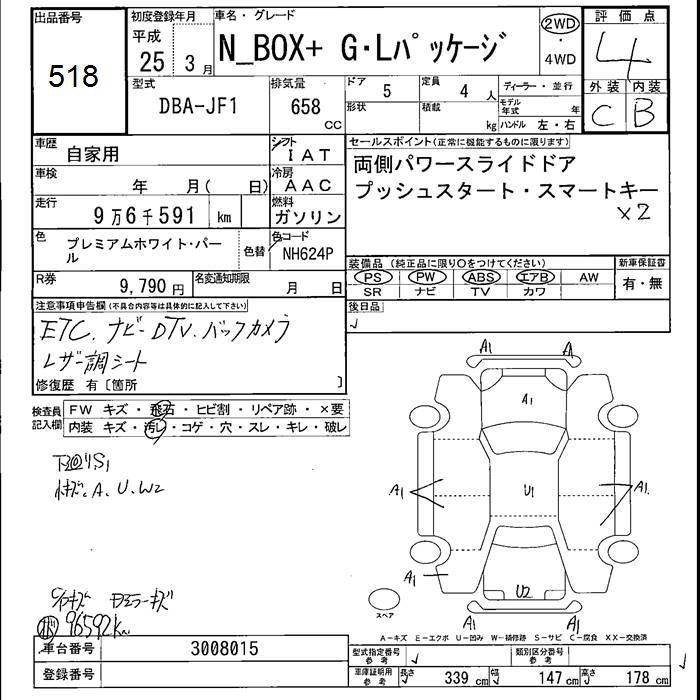 出品番号
518
初度登録年月
平成
25 3月
車名・グレード
N_BOX+ G・Lパッケージ
2WD
・
4WD
評価点
4
外装 内装
C B
型式
DBA-JF1
排気量
658
cc
ドア
5
形状
定員
4 人
積載
kg
ディーラー・並行
モデル年式 年
ハンドル 左・右
車歴
自家用
シフト
I A T
車検
年 月( 日)
冷房
A A C
走行
9万6千591 km
燃料
ガソリン
色
プレミアムホワイト・パール
色替
色コード
NH624P
R券
9,790 円
名変通知期限
月 日
セールスポイント(正常に機能するものに限ります)
両側パワースライドドア
プッシュスタート・スマートキー
x2
装備品(純正品に限り○をつけてください)
PS PW ABS エアB AW
SR ナビ TV カワ
新車保証書
有・無
後日品
注意事項申告欄(不具合内容等は具体的に記入して下さい)
ETC. ナビーDTV. バックカメラ
レザー調シート
修復歴 有〔箇所 〕
検査員記入欄
FW キズ・飛石・ヒビ割・リペア跡・×要
内装 キズ・汚レ・コゲ・穴・スレ・キレ・破レ
A. U. W2
96592km
A1
A1
A1
A1
U1
A1
A1
U2
スペア
A-キズ E-エクボ U-凹み W-補修跡 S-サビ C-腐食 XX-交換済
車台番号 3008015
登録番号
型式指定番号
参考
類別区分番号
参考
車庫証明用
参考
長さ 339 cm 幅 147 cm 高さ 178 cm